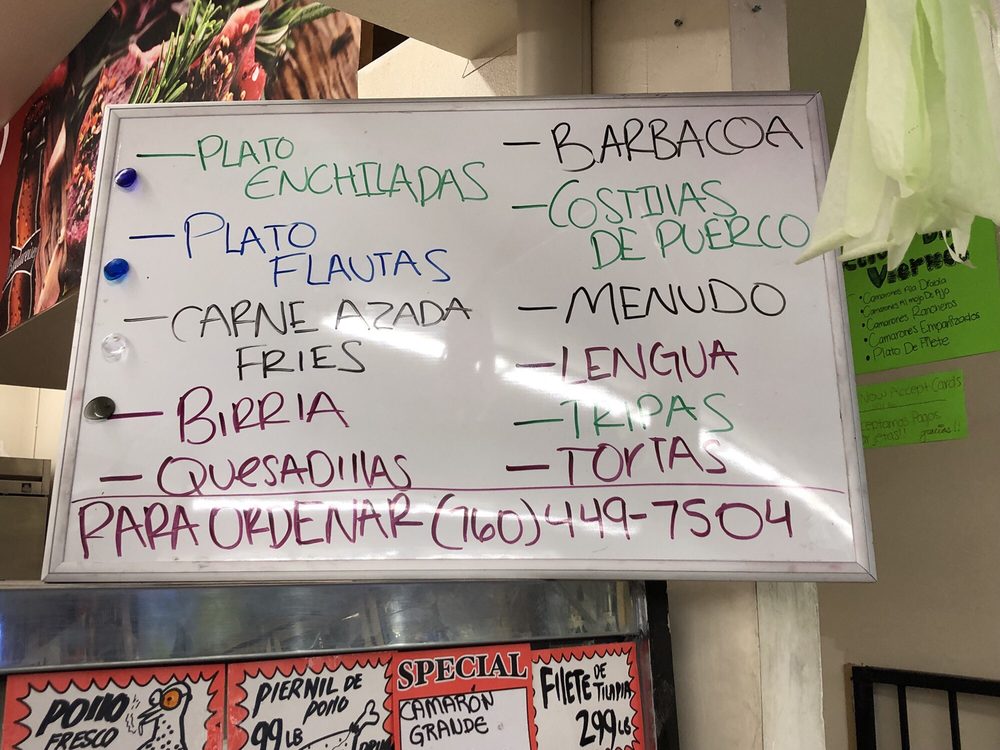 — PLATO
ENCHILADAS
— PLATO
FLAUTAS
— CARNE AZADA
FRIES
— BIRRIA
— QUESADILLAS
— BARBACOA
— COSTILLAS
DE PUERCO
— MENUDO
— LENGUA
— TRIPAS
— TORTAS
PARA ORDENAR (760) 449-7504
Viernes
• Camarones Ala Diabla
• Camarones Al mojo De Ajo
• Camarones Rancheros
• Camarones Empanizados
• Plato De Filete
Now Accept Cards
Pagos
gracias!!
POLLO
FRESCO
PIERNIL DE
POLLO
99 LB
SPECIAL
CAMARÓN
GRANDE
FILETE DE
TILAPIA
2.99 LB